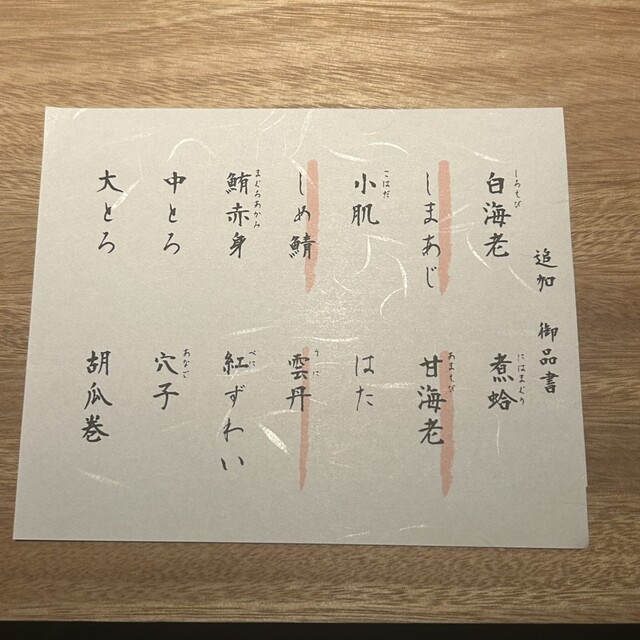 追加 御品書
白海老 しろえび
しまあじ
小肌 こはだ
しめ鯖
鮪赤身 まぐろあかみ
中とろ
大とろ
煮蛤 にはまぐり
甘海老 あまえび
はた
雲丹 うに
紅ずわい べに
穴子 あなご
胡瓜巻